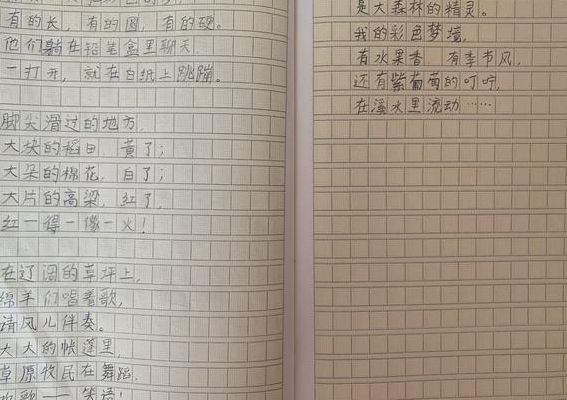 有的长，有的圆，有的硬。
他们躺在铅笔盒里聊天，
一打开，就在白纸上跳蹦。
脚尖滑过的地方，
大块的稻田，黄了；
大朵的棉花，白了；
大片的高梁，红了，
红一得一像一火！
在辽阔的草坪上，
绵羊们唱着歌，
清风儿伴奏。
大大的帐蓬里，
草原牧民在舞蹈，
欢歌——笑语！
是大森林的精灵。
我的彩色梦境，
有水果香，有季节风，
还有紫葡萄的叮咛，
在溪水里流动……